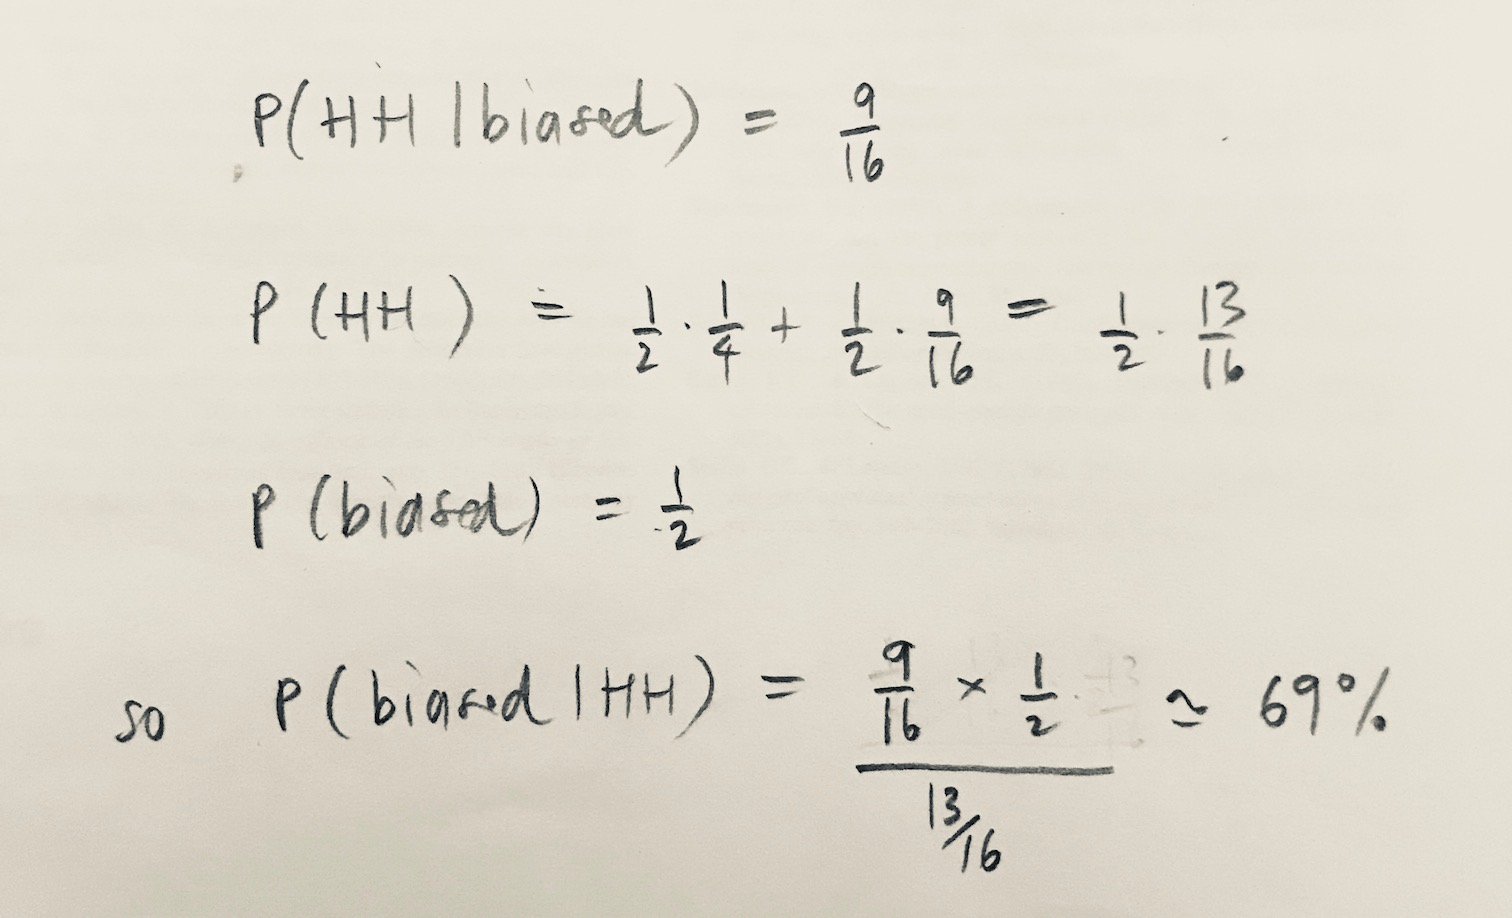 P(HH | biased) = 9/16
P(HH) = 1/2 · 1/4 + 1/2 · 9/16 = 1/2 · 13/16
P(biased) = 1/2
so P(biased | HH) = (9/16 × 1/2) / (13/16) ≃ 69%